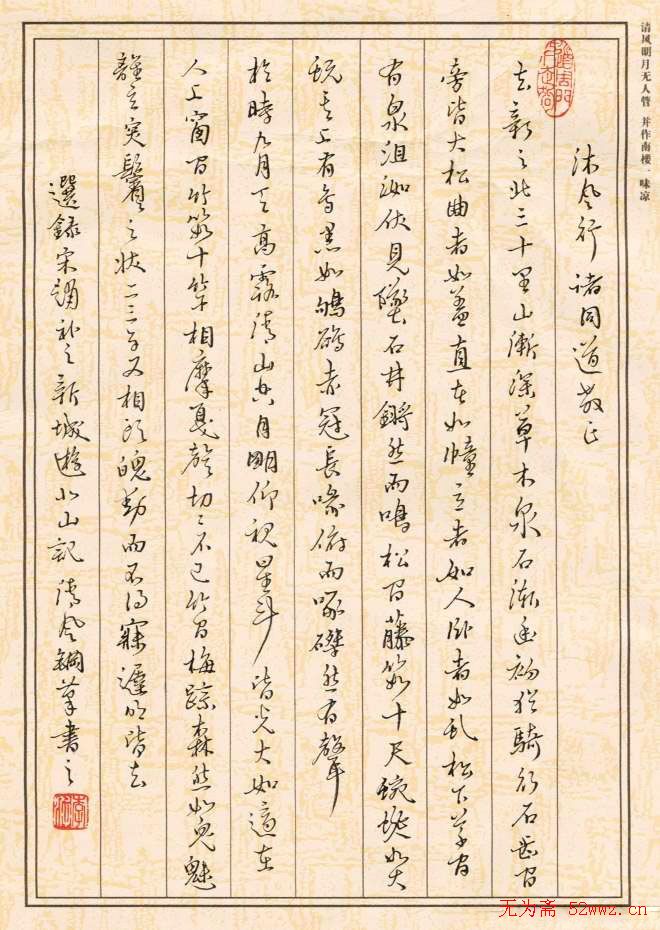 清风明月无人管 并作南楼一味凉
沐風行諸同道教正
去新之北三十里山漸深草木泉石漸幽初猶騎行石齒間
旁皆大松曲者如蓋直者如幢立者如人卧者如虬松下草間
有泉沮洳伏見墮石井鏘然而鳴松間藤數十尺蜿蜒如大
蚖其上有鳥黑如鴝鵒赤冠長喙俯而啄磔然有聲
於時九月天高露清山空月明仰視星斗皆光大如適在
人上窗間竹數十竿相摩戛聲切切不已竹間梅棕森然如鬼魅
離立突鬢之狀二三子又相顧魄動而不得寐遲明皆去
選錄宋晁補之新城遊北山記 清風鋼筆書之
无为斋 52wwz.cn